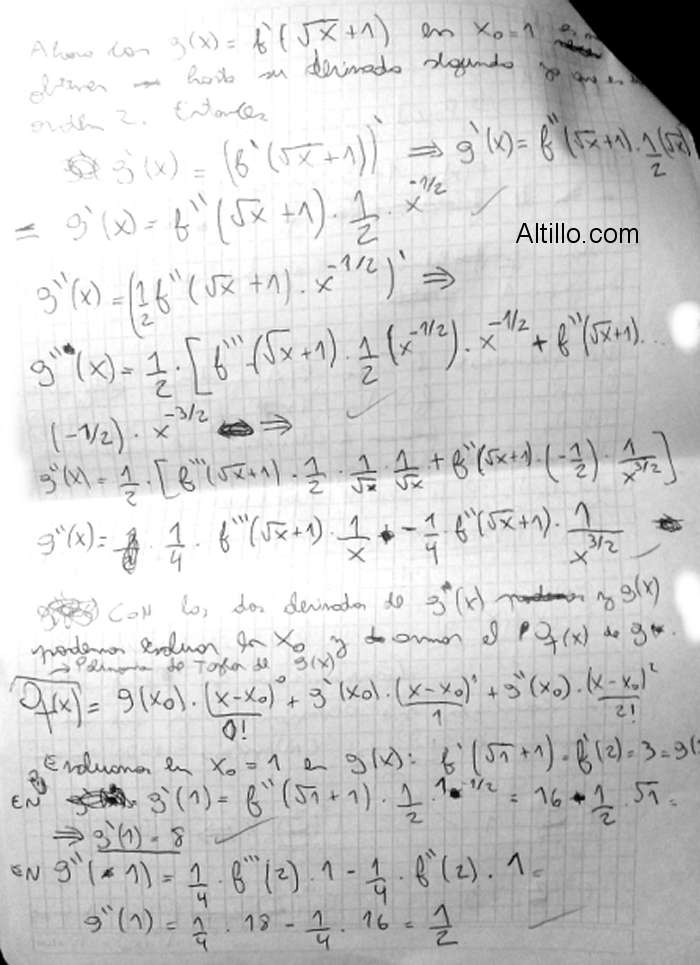 Ahora con g(x) = f'(√x + 1) en x₀ = 1
hasta su derivada segunda ya que es
orden 2. Entonces
g'(x) = (f'(√x + 1))' ⇒ g'(x) = f''(√x + 1) · 1/2 (√x)
= g'(x) = f''(√x + 1) · 1/2 · x^(-1/2)
Altillo.com
g''(x) = (1/2 f''(√x + 1) · x^(-1/2))' ⇒
g''(x) = 1/2 · [f'''(√x + 1) · 1/2 (x^(-1/2)) · x^(-1/2) + f''(√x + 1) ...
(-1/2) · x^(-3/2) ⇒
g''(x) = 1/2 · [f'''(√x + 1) · 1/2 · 1/√x · 1/√x + f''(√x + 1) · (-1/2) · 1/x^(3/2)]
g''(x) = 1/4 · f'''(√x + 1) · 1/x - 1/4 · f''(√x + 1) · 1/x^(3/2)
Con las dos derivadas de g(x) y g(x)
podemos evaluar en x₀ y armar el P (x) de g
→ Polinomio de Taylor de g(x)
(x) = g(x₀) · (x-x₀)⁰/0! + g'(x₀) · (x-x₀)¹/1 + g''(x₀) · (x-x₀)²/2!
Evaluamos en x₀ = 1 en g(x): f'(√1 + 1) = f'(2) = 3 = g(
EN g'(1) = f''(√1 + 1) · 1/2 · 1^(-1/2) = 16 · 1/2 · √1 =
⇒ g'(1) = 8
EN g''(1) = 1/4 · f'''(2) · 1 - 1/4 · f''(2) · 1 =
g''(1) = 1/4 · 18 - 1/4 · 16 = 1/2